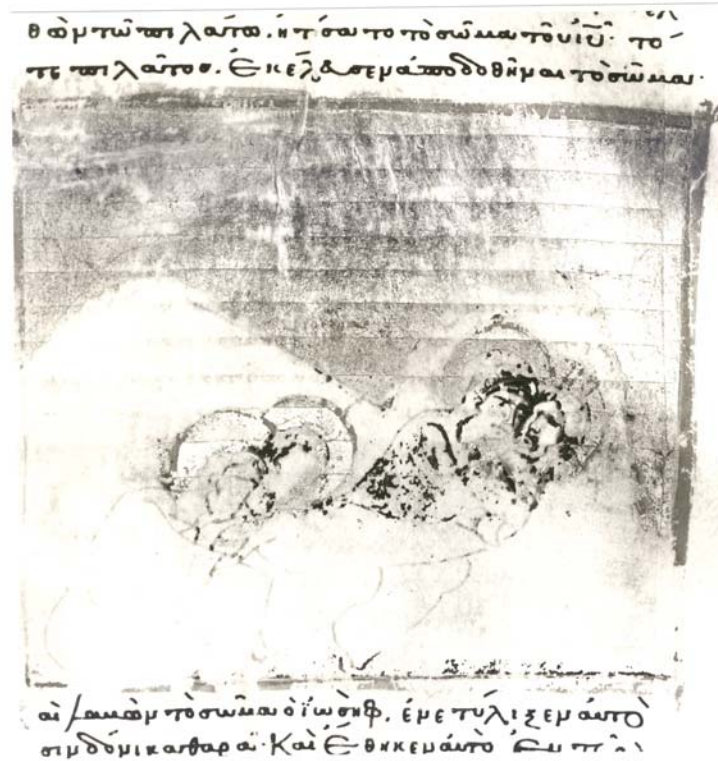 θὼν τῶ πιλάτω. ἠτήσατο τὸ σῶμα τοῦ ἰῦ· τό
τε πιλᾶτος. Ἐκέλευσεν ἀποδοθῆναι τὸ σῶμα·
αὶ λαβὼν τὸ σῶμα ὁ ἰωσὴφ, ἐνετύλιξεν αὐτὸ
σινδόνι καθαρᾶ· Καὶ Ἔθηκεν αὐτὸ Ἐν